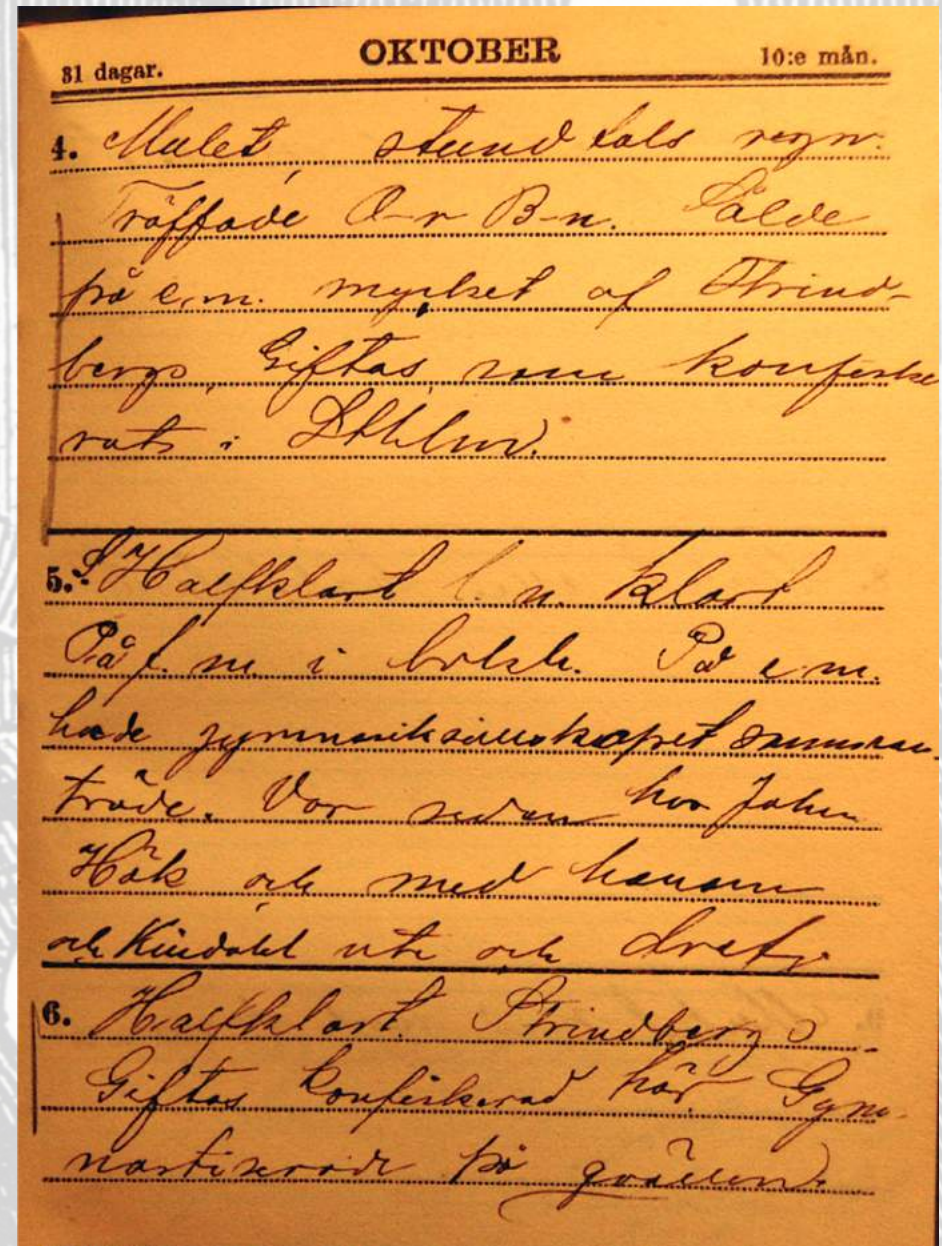 31 dagar. OKTOBER 10:e mån.
4. Mulet, stundtals regn.
Träffade O-r B-n. Sålde
på e.m. mycket af Strind-
bergs, Giftas, som konfiske
rats i Sthlm.
5. S Halfklart l. n. klart
På f. m. i bokh. På e.m.
hade gymnastiksällskapet samman
träde. Var sedan hos John
Hök och med honom
och Kindahl ute och drefv
6. Halfklart. Strindbergs
Giftas konfiskerad här. Gym-
nastiserade på qvällen.